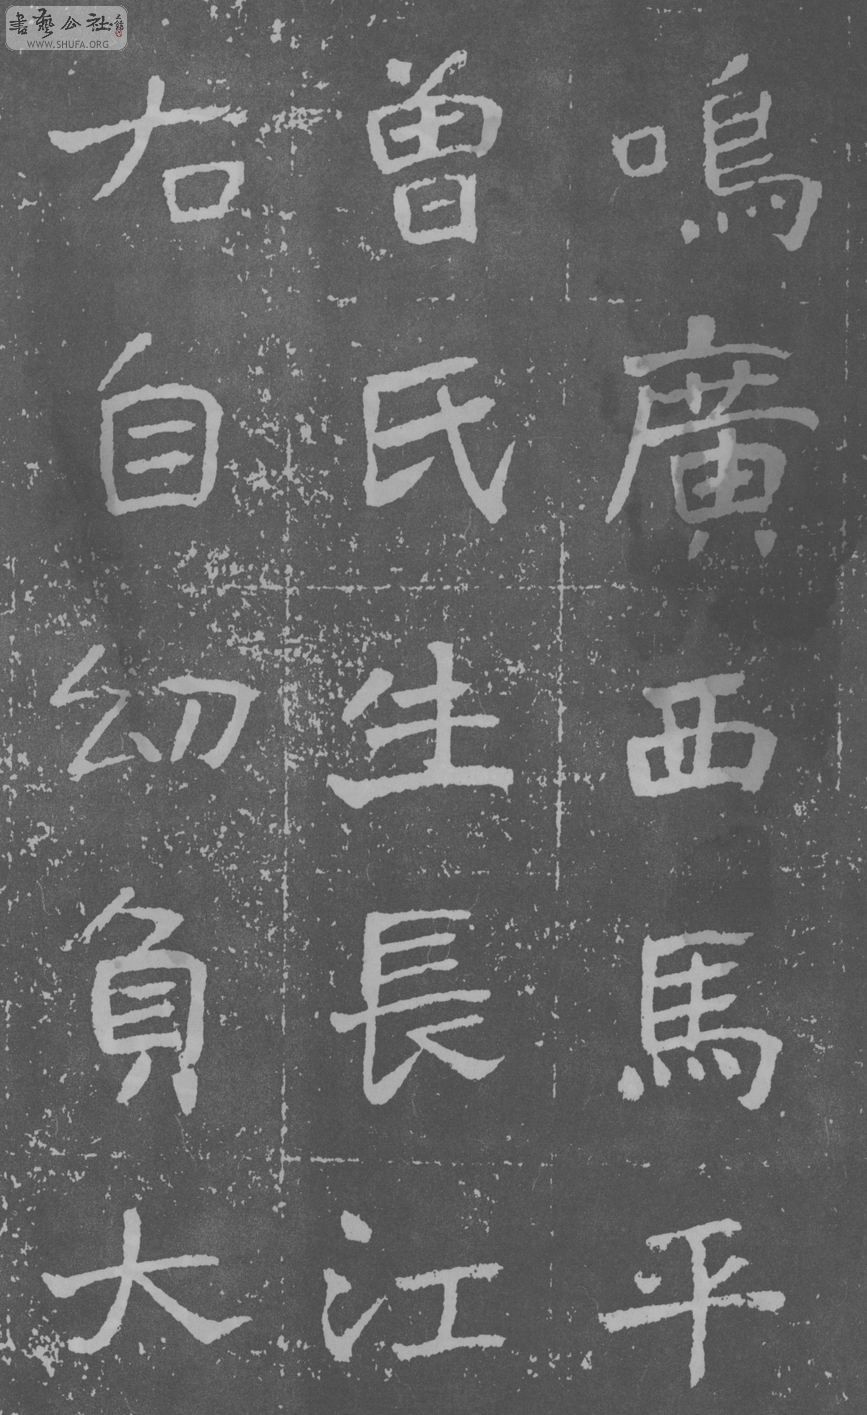 鳴廣西馬平
曾氏生長江
右自幼負大
書藝公社
WWW.SHUFA.ORG